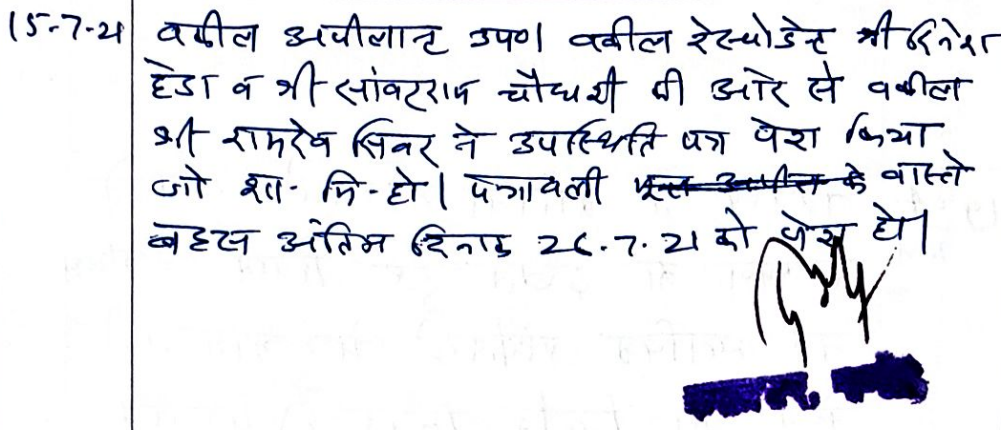 15-7-21 वकील अपीलान्ट उप०। वकील रेस्पोडेन्ट श्री दिनेश
हेडा व श्री सांवरराम चौधरी की ओर से वकील
श्री रामदेव सिवर ने उपस्थिति पत्र पेश किया
जो शा. मि. हो। पत्रावली के वास्ते
बहस अंतिम दिनांक 26.7.21 को पेश हो।